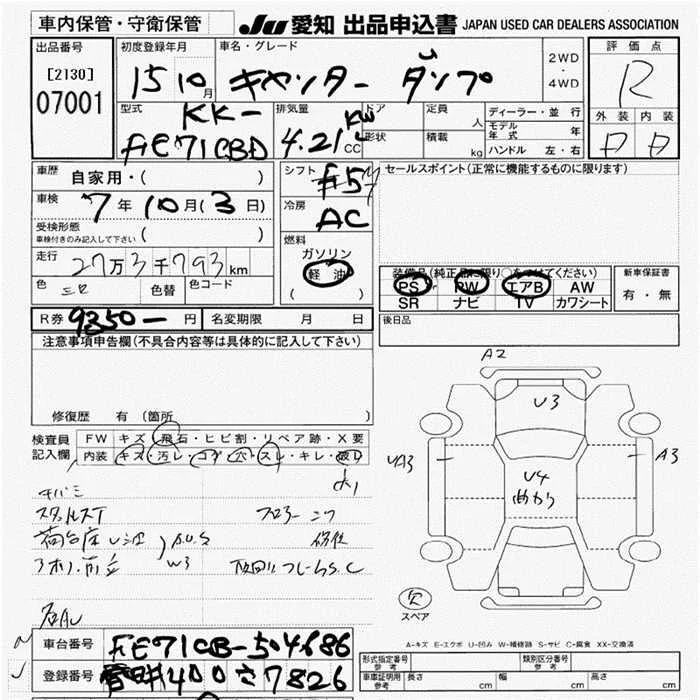 車内保管・守衛保管
JU 愛知 出品申込書 JAPAN USED CAR DEALERS ASSOCIATION
出品番号
[2130]
07001
初度登録年月
15 10 月
車名・グレード
キャンター ダンプ
2WD
・
4WD
評価点
R
外装 内装
D D
型式
KK-
FE71CBD
排気量
4.21 CC
ドア
形状
定員
人
積載
kg
ディーラー・並行
モデル
年式 年
ハンドル 左・右
車歴
自家用・( )
車検
7 年 10 月 ( 3 日)
受検形態
車検付きのみ記入して下さい ( )
走行
27万3千793 km
色 色替 色コード
シフト
F5
冷房
AC
燃料
ガソリン
軽油
( )
セールスポイント(正常に機能するものに限ります)
装備品(純正品に限り○をつけてください)
PS PW エアB AW
SR ナビ TV カワシート
新車保証書
有・無
R券 9350- 円
名変期限 月 日
後日品
注意事項申告欄(不具合内容等は具体的に記入して下さい)
修復歴 有 (箇所 )
検査員
記入欄
FW キズ・飛石・ヒビ割・リペア跡・X要
内装 キズ・汚レ・コゲ・穴・スレ・キレ・破レ
キバミ
スタッドレスT
荷台床
A2
U3
UA3
A3
U4
曲がり
欠
スペア
A-キズ E-エクボ U-凹み W-補修跡 S-サビ C-腐食 XX-交換済
車台番号 FE71CB-504686
登録番号 400 さ 7826
形式指定番号
参考
類別区分番号
参考
車庫証明用
参考
長さ cm 幅 cm 高さ cm